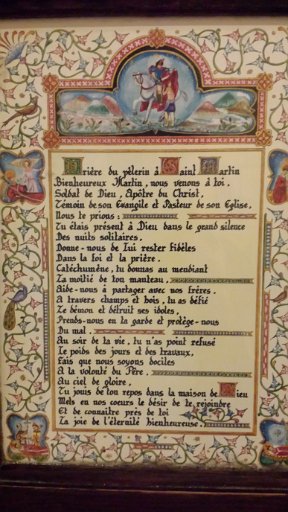 Prière du pèlerin à Saint Martin
Bienheureux Martin, nous venons à toi.
Soldat de Dieu, Apôtre du Christ,
Témoin de son Evangile et Pasteur de son Eglise,
Nous te prions :
Tu étais présent à Dieu dans le grand silence
Des nuits solitaires.
Donne-nous de Lui rester fidèles
Dans la foi et la prière.
Catéchumène, tu donnas au mendiant
La moitié de ton manteau,
Aide-nous à partager avec nos frères.
A travers champs et bois, tu as défié
Le démon et détruit ses idoles,
Prends-nous en ta garde et protège-nous
Du mal.
Au soir de ta vie, tu n'as point refusé
Le poids des jours et des travaux,
Fais que nous soyons dociles
A la volonté du Père.
Au ciel de gloire,
Tu jouis de ton repos dans la maison de Dieu
Mets en nos coeurs le désir de te rejoindre
Et de connaître près de toi
La joie de l'éternité bienheureuse.